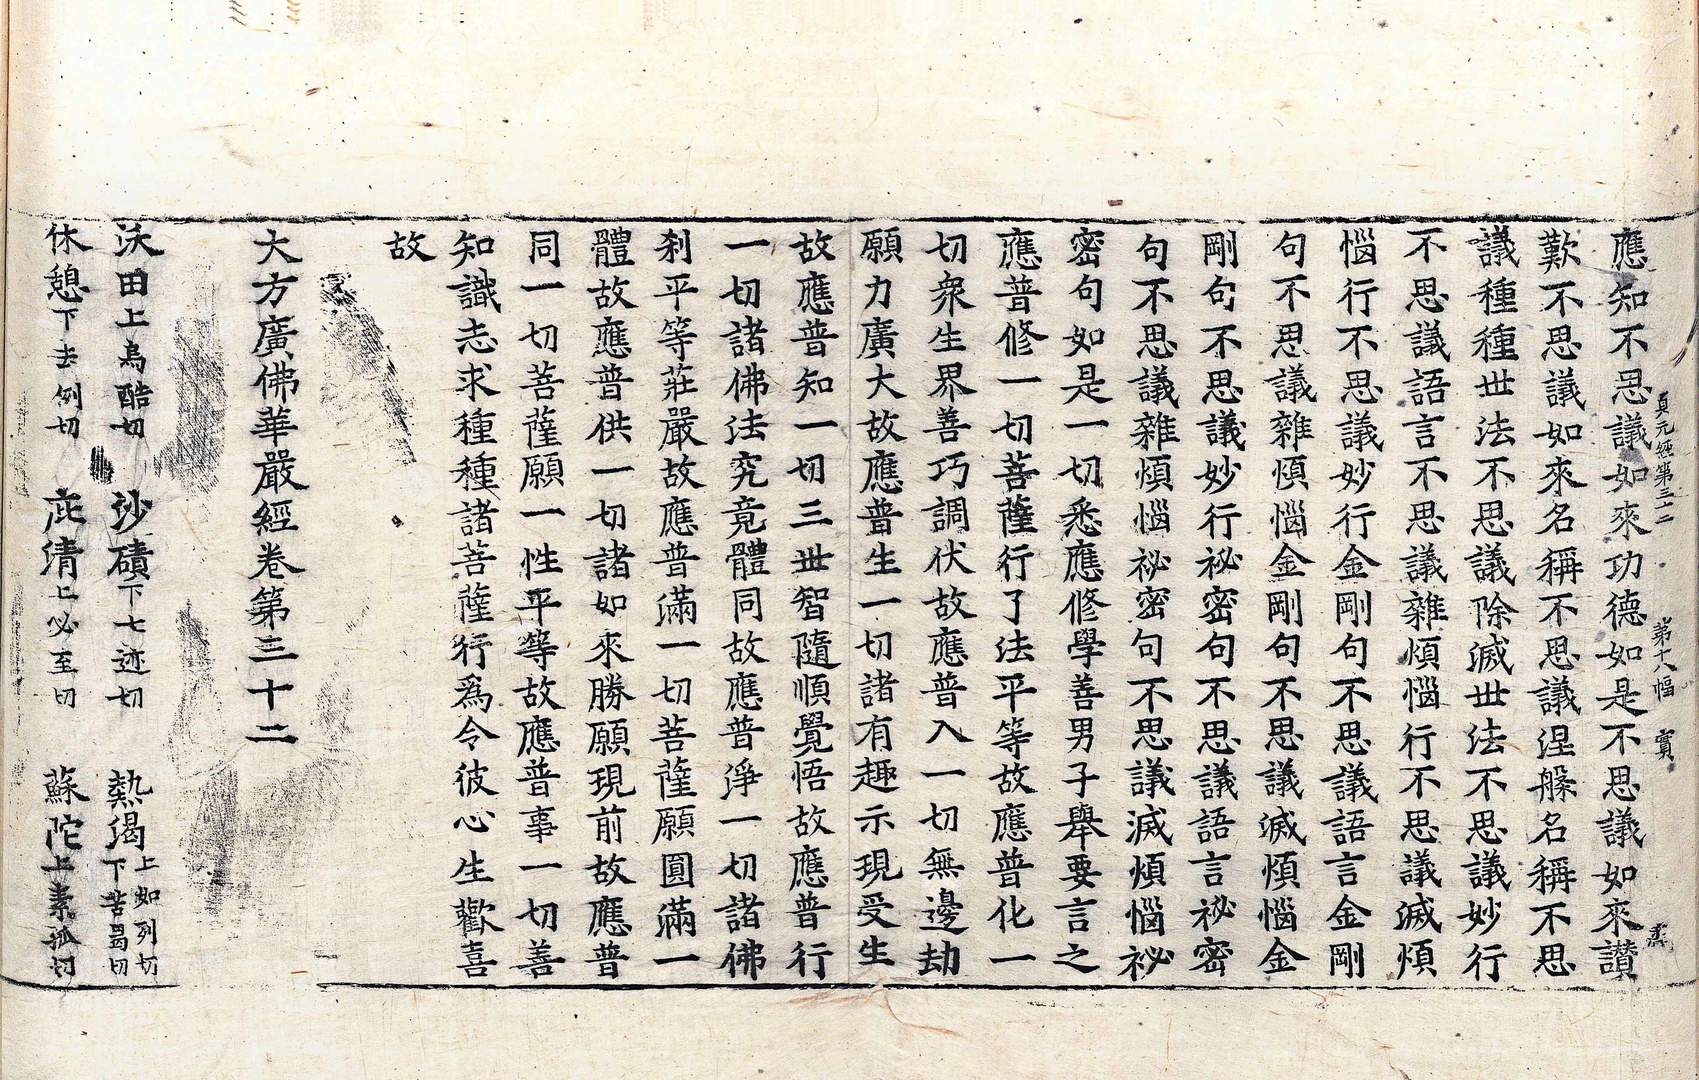 貞元經第三十二 第十八幅 實 素
應知不思議如來功德如是不思議如來讃
歎不思議如來名稱不思議涅槃名稱不思
議種種世法不思議除滅世法不思議妙行
不思議語言不思議雜煩惱行不思議滅煩
惱行不思議妙行金剛句不思議語言金剛
句不思議雜煩惱金剛句不思議滅煩惱金
剛句不思議妙行祕密句不思議語言祕密
句不思議雜煩惱祕密句不思議滅煩惱祕
密句如是一切悉應修學善男子舉要言之
應普修一切菩薩行了法平等故應普化一
切衆生界善巧調伏故應普入一切無邊劫
願力廣大故應普生一切諸有趣示現受生
故應普知一切三世智隨順覺悟故應普行
一切諸佛法究竟體同故應普淨一切諸佛
刹平等莊嚴故應普滿一切菩薩願圓滿一
體故應普供一切諸如來勝願現前故應普
同一切菩薩願一性平等故應普事一切善
知識志求種種諸菩薩行爲令彼心生歡喜
故
大方廣佛華嚴經卷第三十二
沃田上烏酷切 沙磧下七迹切 熱渴上如列切下苦曷切
休憩下去例切 庇清上必至切 蘇陀上素孤切